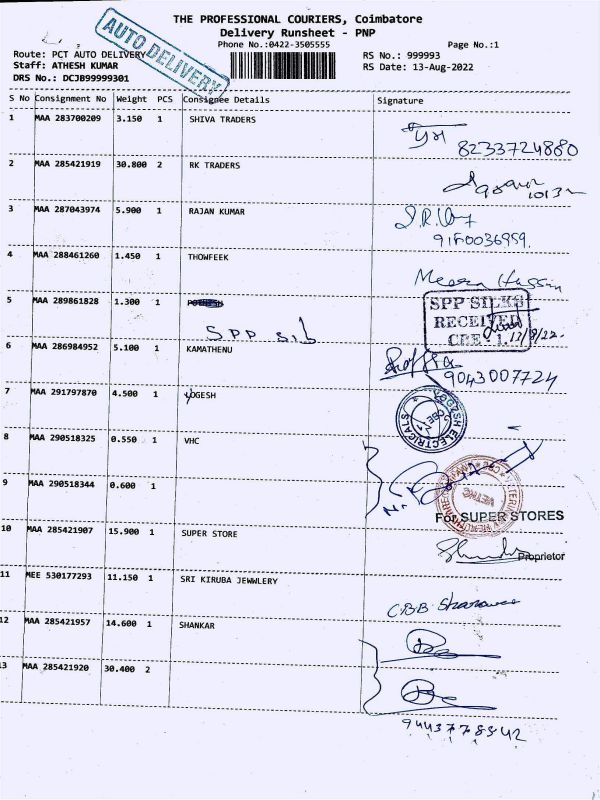 THE PROFESSIONAL COURIERS, Coimbatore
Delivery Runsheet - PNP
Phone No.:0422-3505555
Page No.:1
AUTO DELIVERY
Route: PCT AUTO DELIVERY
RS No.: 999993
Staff: ATHESH KUMAR
RS Date: 13-Aug-2022
DRS No.: DCJB99999301
S No Consignment No Weight PCS Consignee Details Signature
1 MAA 283700209 3.150 1 SHIVA TRADERS
8233724880
2 MAA 285421919 30.800 2 RK TRADERS
3 MAA 287043974 5.900 1 RAJAN KUMAR
4 MAA 288461260 1.450 1 THOWFEEK
Meera Hussain
5 MAA 289861828 1.300 1
SPP SILKS
RECEIVED
CBE
13/8/22
SPP silk
6 MAA 286984952 5.100 1 KAMATHENU
9043007724
7 MAA 291797870 4.500 1 YOGESH
YOGESH ELECTRICALS
CBE
8 MAA 290518325 0.550 1 VHC
9 MAA 290518344 0.600 1
For SUPER STORES
10 MAA 285421907 15.900 1 SUPER STORE
Proprietor
11 MEE 530177293 11.150 1 SRI KIRUBA JEWWLERY
12 MAA 285421957 14.600 1 SHANKAR
13 MAA 285421920 30.400 2